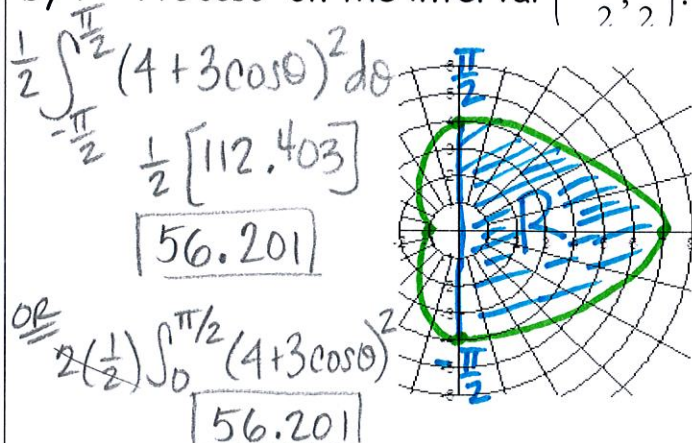 on the interval
1/2 ∫_{-π/2}^{π/2} (4 + 3cosθ)² dθ
1/2 [112.403]
56.201
OR
2(1/2) ∫_0^{π/2} (4+3cosθ)²
56.201
π/2
R
-π/2